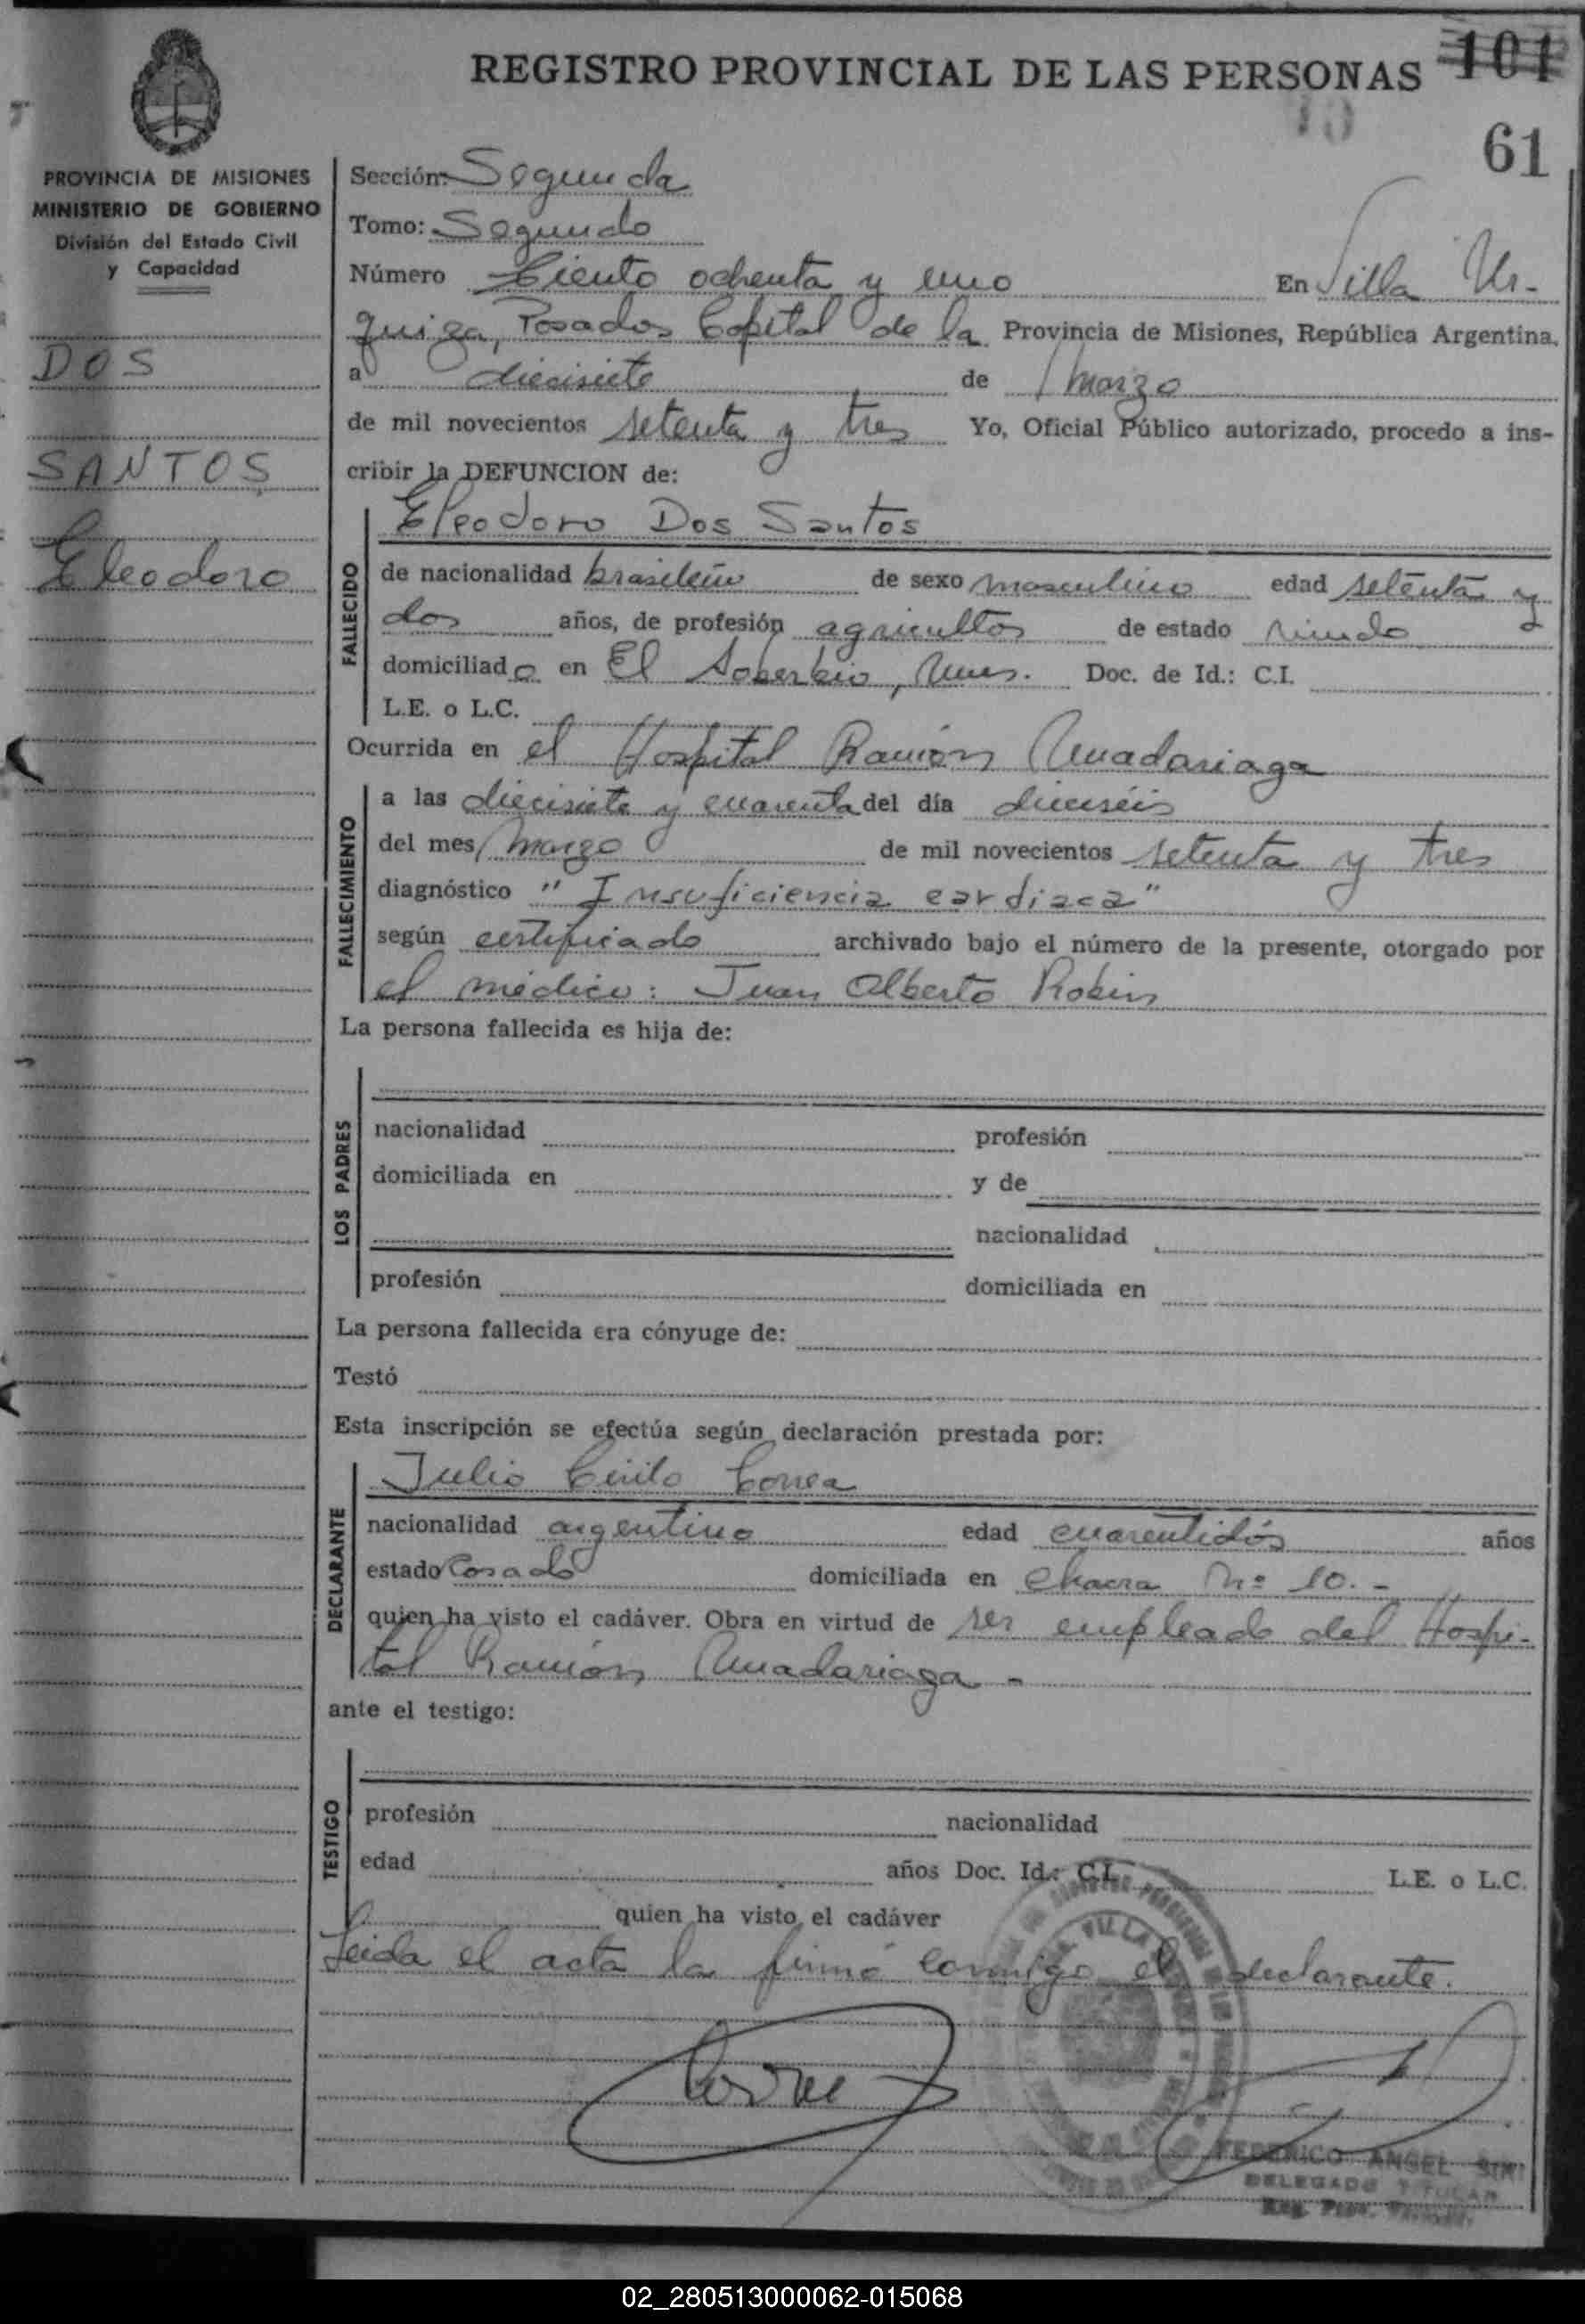 REGISTRO PROVINCIAL DE LAS PERSONAS 101
61
PROVINCIA DE MISIONES
MINISTERIO DE GOBIERNO
División del Estado Civil
y Capacidad
DOS
SANTOS
Eleodoro
Sección: Segunda
Tomo: Segundo
Número Ciento ochenta y uno En Villa Ur-
quiza, Posadas Capital de la Provincia de Misiones, República Argentina,
a diecisiete de marzo
de mil novecientos setenta y tres Yo, Oficial Público autorizado, procedo a ins-
cribir la DEFUNCION de:
Eleodoro Dos Santos
FALLECIDO
de nacionalidad brasileño de sexo masculino edad setenta y
dos años, de profesión agricultor de estado viudo
domiciliado en El Soberbio, Mnes. Doc. de Id.: C.I.
L.E. o L.C.
Ocurrida en el Hospital Ramón Madariaga
FALLECIMIENTO
a las diecisiete y cuarenta del día dieciséis
del mes marzo de mil novecientos setenta y tres
diagnóstico "Insuficiencia cardiaca"
según certificado archivado bajo el número de la presente, otorgado por
el médico: Juan Alberto Robin
La persona fallecida es hija de:
LOS PADRES
nacionalidad profesión
domiciliada en y de
nacionalidad
profesión domiciliada en
La persona fallecida era cónyuge de:
Testó
Esta inscripción se efectúa según declaración prestada por:
Julio Cirilo Correa
DECLARANTE
nacionalidad argentino edad cuarentidós años
estado Casado domiciliada en Chacra Nº 10.-
quien ha visto el cadáver. Obra en virtud de ser empleado del Hospi-
tal Ramón Madariaga -
ante el testigo:
TESTIGO
profesión nacionalidad
edad años Doc. Id.: C.I. L.E. o L.C.
quien ha visto el cadáver
Leida el acta la firmó conmigo el declarante.
FEDERICO ANGEL
DELEGADO TITULAR
02_280513000062-015068